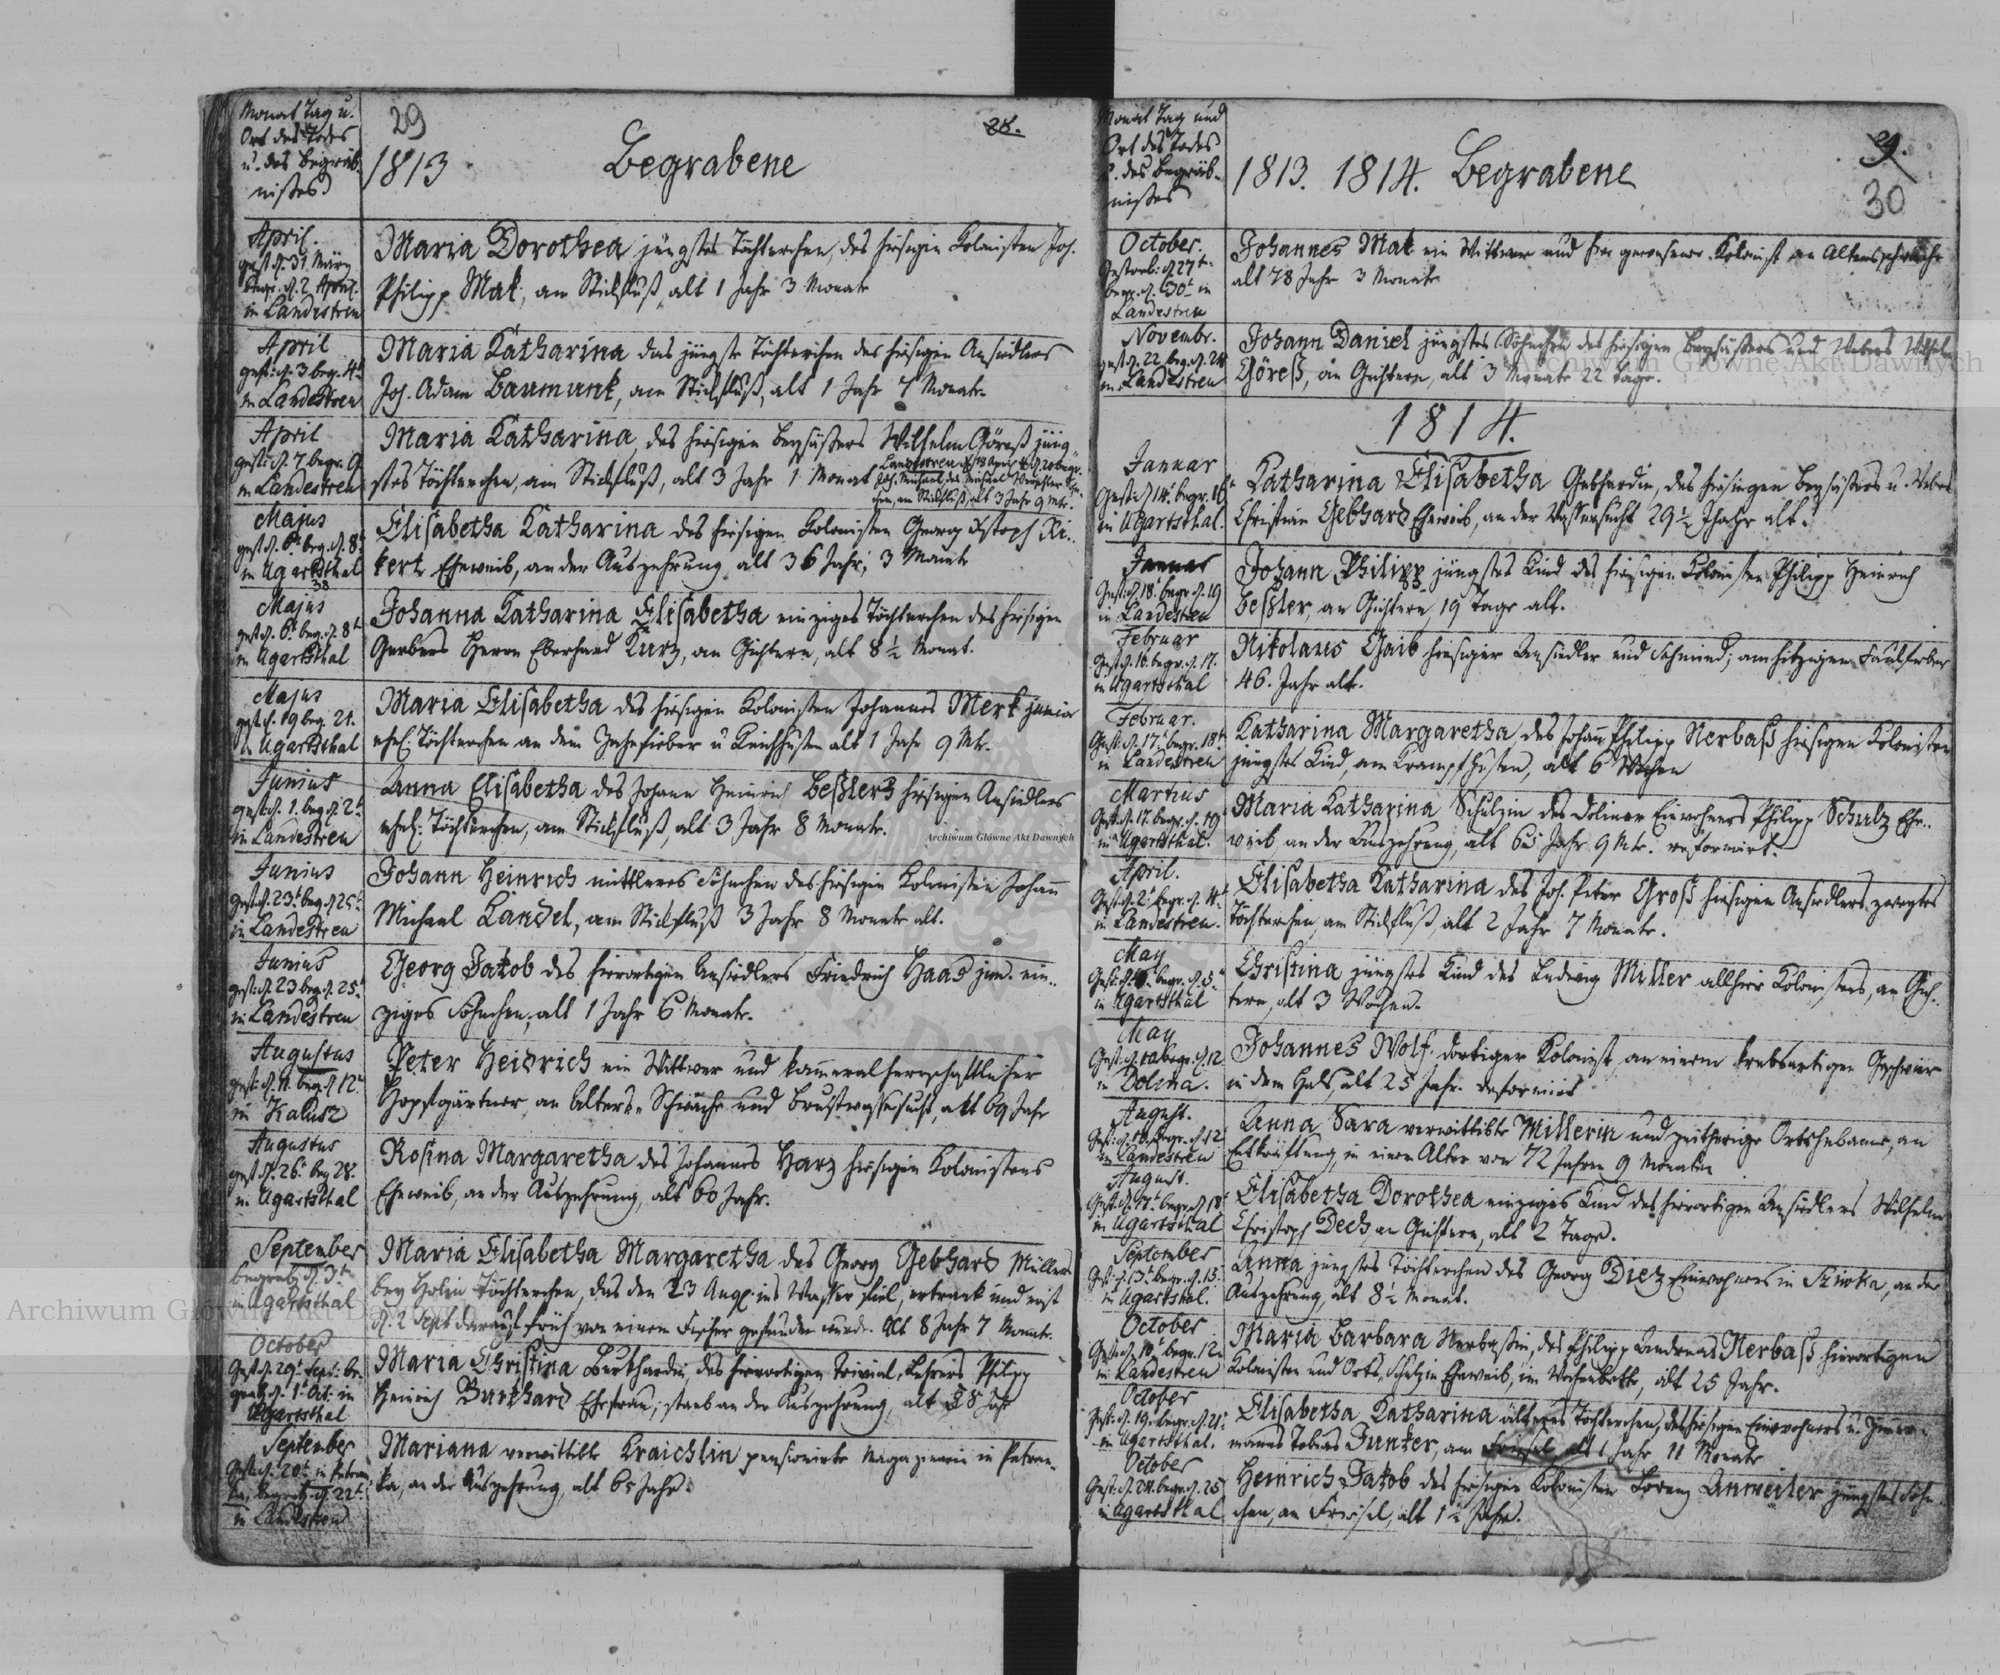 Monat Tag u.
Ort des Todes
u. des Begräb-
nißes
29
1813
Begrabene
28.
April.
gest. d. 31 März
begr. d. 2 April.
in Landestreu
Maria Dorothea jüngstes Töchterchen, des hiesigen Kolonisten Joh.
Philipp Mak, am Stickfluß, alt 1 Jahr 3 Monate
April
gest. d. 3 beg. 4t
in Landestreu
Maria Katharina das jüngste Töchterchen des hiesigen Ansiedlers
Joh. Adam Baumunk, am Stickfluß, alt 1 Jahr 7 Monate
April
gest. d. 7 begr. 9
in Landestreu
Maria Katharina des hiesigen Beysäßers Wilhelm Göreß jüng-
stes Töchterchen, am Stickfluß, alt 3 Jahr 1 Monat
Landestreu d. 18 April d. 20 begr.
Joh. Michael des Michael
am Stickfluß, alt 3 Jahr 9 Mte.
Majus
gest. d. 6t beg. d. 8t
in Ugartsthal
38
Elisabetha Katharina des hiesigen Kolonisten Georg Xstoph Ri-
kert Eheweib, an der Auszehrung alt 36 Jahr, 3 Monate
Majus
gest. d. 6t beg. d. 8t
in Ugartsthal
Johanna Katharina Elisabetha einziges Töchterchen des hiesigen
Gerbers Herrn Eberhard Kurz, an Gichtern, alt 8 ½ Monat.
Majus
gest. d. 19 beg. 21.
in Ugartsthal
Maria Elisabetha des hiesigen Kolonisten Johannes Merk junior
ehel. Töchterchen an dem Zahnfieber u Keichhusten alt 1 Jahr 9 Mte.
Junius
gest. d. 1. beg d. 2t
in Landestreu
Anna Elisabetha des Johann Heinrich Beßlers hiesigen Ansiedlers
ehel. Töchterchen, am Stickfluß, alt 3 Jahr 8 Monate.
Archiwum Główne Akt Dawnych
Junius
gest. d. 23t beg. d 25t
in Landestreu
Johann Heinrich mittleres Söhnchen des hiesigen Kolonisten Johann
Michael Kandel, am Stickfluß 3 Jahr 8 Monate alt.
Junius
gest. d. 23 beg. d. 25t
in Landestreu
Georg Jakob des hierortigen Ansiedlers Friedrich Haas jun. ein-
ziges Söhnchen, alt 1 Jahr 6 Monate.
Augustus
gest. d. 11. beg. d 12t
in Kalusz
Peter Heidrich ein Wittwer und kammeralherrschaftlicher
Hopfgärtner, an Alters-Schwäche und Brustwassersucht, alt 69 Jahr
Augustus
gest. d. 26t beg 28t.
in Ugartsthal
Rosina Margaretha des Johannes Harz hiesigen Kolonistens
Eheweib, an der Auszehrung, alt 60 Jahr.
September
begrab. d. 3ten
in Ugartsthal
Maria Elisabetha Margaretha des Georg Gebhard Müllers
bey Holin Töchterchen, das den 23 Aug. ins Wasser fiel, ertrank und erst
d. 2 Sept darauf früh von einem Fischer gefunden wurde. Alt 8 Jahr 7 Monate.
October
Gest. d. 29t Sept. be-
graben d. 1t Oct. in
Ugartsthal
Maria Christina Burkhardin, des hierortigen Trivial-Lehrers Philipp
Heinrich Burkhard Ehefrau, starb an der Auszehrung, alt 38 Jahr
September
Gest. d. 20t in Petran-
ka, begrab. d. 22t
in Landestreu
Mariana verwittibte Kraichlin pensionirte Magazinerin in Petran-
ka, an der Auszehrung, alt 65 Jahr.
Monat Tag und
Ort des Todes
u. des Begräb-
nißes
1813. 1814. Begrabene
29.
30
October.
Gestorb. d. 27t
begr. d. 30t in
Landestreu
Johannes Mak ein Wittwer und hier gewesener Kolonist an Altersschwäche
alt 78 Jahr 3 Monate
Novembr.
gest. d. 22. beg. d. 24
in Landestreu
Johann Daniel jüngstes Söhnchen des hiesigen Beysäßers und Webers Wilhelm
Göreß, an Gichtern, alt 3 Monate 22 Tage.
Archiwum Główne Akt Dawnych
1814.
Januar
Gest. d 14t begr. 16t
in Ugartsthal.
Katharina Elisabetha Gebhardin, des hiesigen Beysäßers u. Webers
Christian Gebhard Eheweib, an der Wassersucht 29 ½ Jahr alt.
Januar
Gest. d. 18t begr. d. 19
in Landestreu
Johann Philipp jüngstes Kind des hiesigen Kolonisten Philipp Heinrich
Beßler, an Gichtern, 19 Tage alt.
Februar
Gest. d. 16. begr. d. 17.
in Ugartsthal
Nikolaus Gaib hiesiger Ansiedler und Schmied, am hitzigen Faulfieber
46. Jahr alt.
Februar.
Gest. d. 17t begr. 18t
in Landestreu
Katharina Margaretha, des Johann Philipp Nerbaß hiesigen Kolonisten
jüngstes Kind, am Krampfhusten, alt 6 Wochen
Martius
Gest. d. 17. begr. d. 19
in Ugartsthal.
Maria Katharina Schulzin des Doliner Einwohners Philipp Schulz Ehe-
weib an der Auszehrung, alt 65 Jahr 9 Mte. reformirt.
April.
Gest. d. 2t begr. d. 4t
in Landestreu.
Elisabetha Katharina des Joh. Peter Groß hiesigen Ansiedlers zweytes
Töchterchen, am Stickfluß, alt 2 Jahr 7 Monate.
May
begr. d. 5t
in Ugartsthal
Christina jüngstes Kind des Ludwig Miller allhier Kolonistens, an Gich-
tern, alt 3 Wochen.
May
Gest. d. 10 begr. d. 12
in Dolina.
Johannes Wolf, dortiger Kolonist, an einem krebsartigen Geschwür
in dem Hals, alt 25 Jahr. reformirt
August.
begr. d. 12t
in Landestreu
Anna Sara verwittibte Millerin und zeitherige Ortshebame, an
Entkräftung, in einem Alter von 72 Jahren 9 Monaten
August.
Gest. d. 17t begr. d 18t
in Ugartsthal
Elisabetha Dorothea einziges Kind des hierortigen Ansiedlers Wilhelm
Christoph Dech, an Gichtern, alt 2 Tage.
September
Gest. d. 13t begr. d. 15.
in Ugartsthal.
Anna jüngstes Töchterchen des Georg Diez Einwohners in Siwka, an der
Auszehrung, alt 8½ Monat.
October
Gest. d. 10t begr. 12t
in Landestreu
Maria Barbara Nerbaßin, des Philipp Andreas Nerbaß hierortigen
Kolonisten und Orts-Schulzin Eheweib, im Wochenbette, alt 25 Jahr.
October
Gest. d. 19. begr. d. 21t
in Ugartsthal.
Elisabetha Katharina älteres Töchterchen, des hiesigen Einwohners u. Zimmer-
manns Tobias Junker, am Friesel, alt 1 Jahr 11 Monate
October
Gest. d. 24. begr. d. 25t
in Ugartsthal
Heinrich Jakob des hiesigen Kolonisten Lorenz Anweiler jüngstes Söhn-
chen, an Friesel, alt 1 ½ Jahr.
Archiwum Główne Akt Dawnych